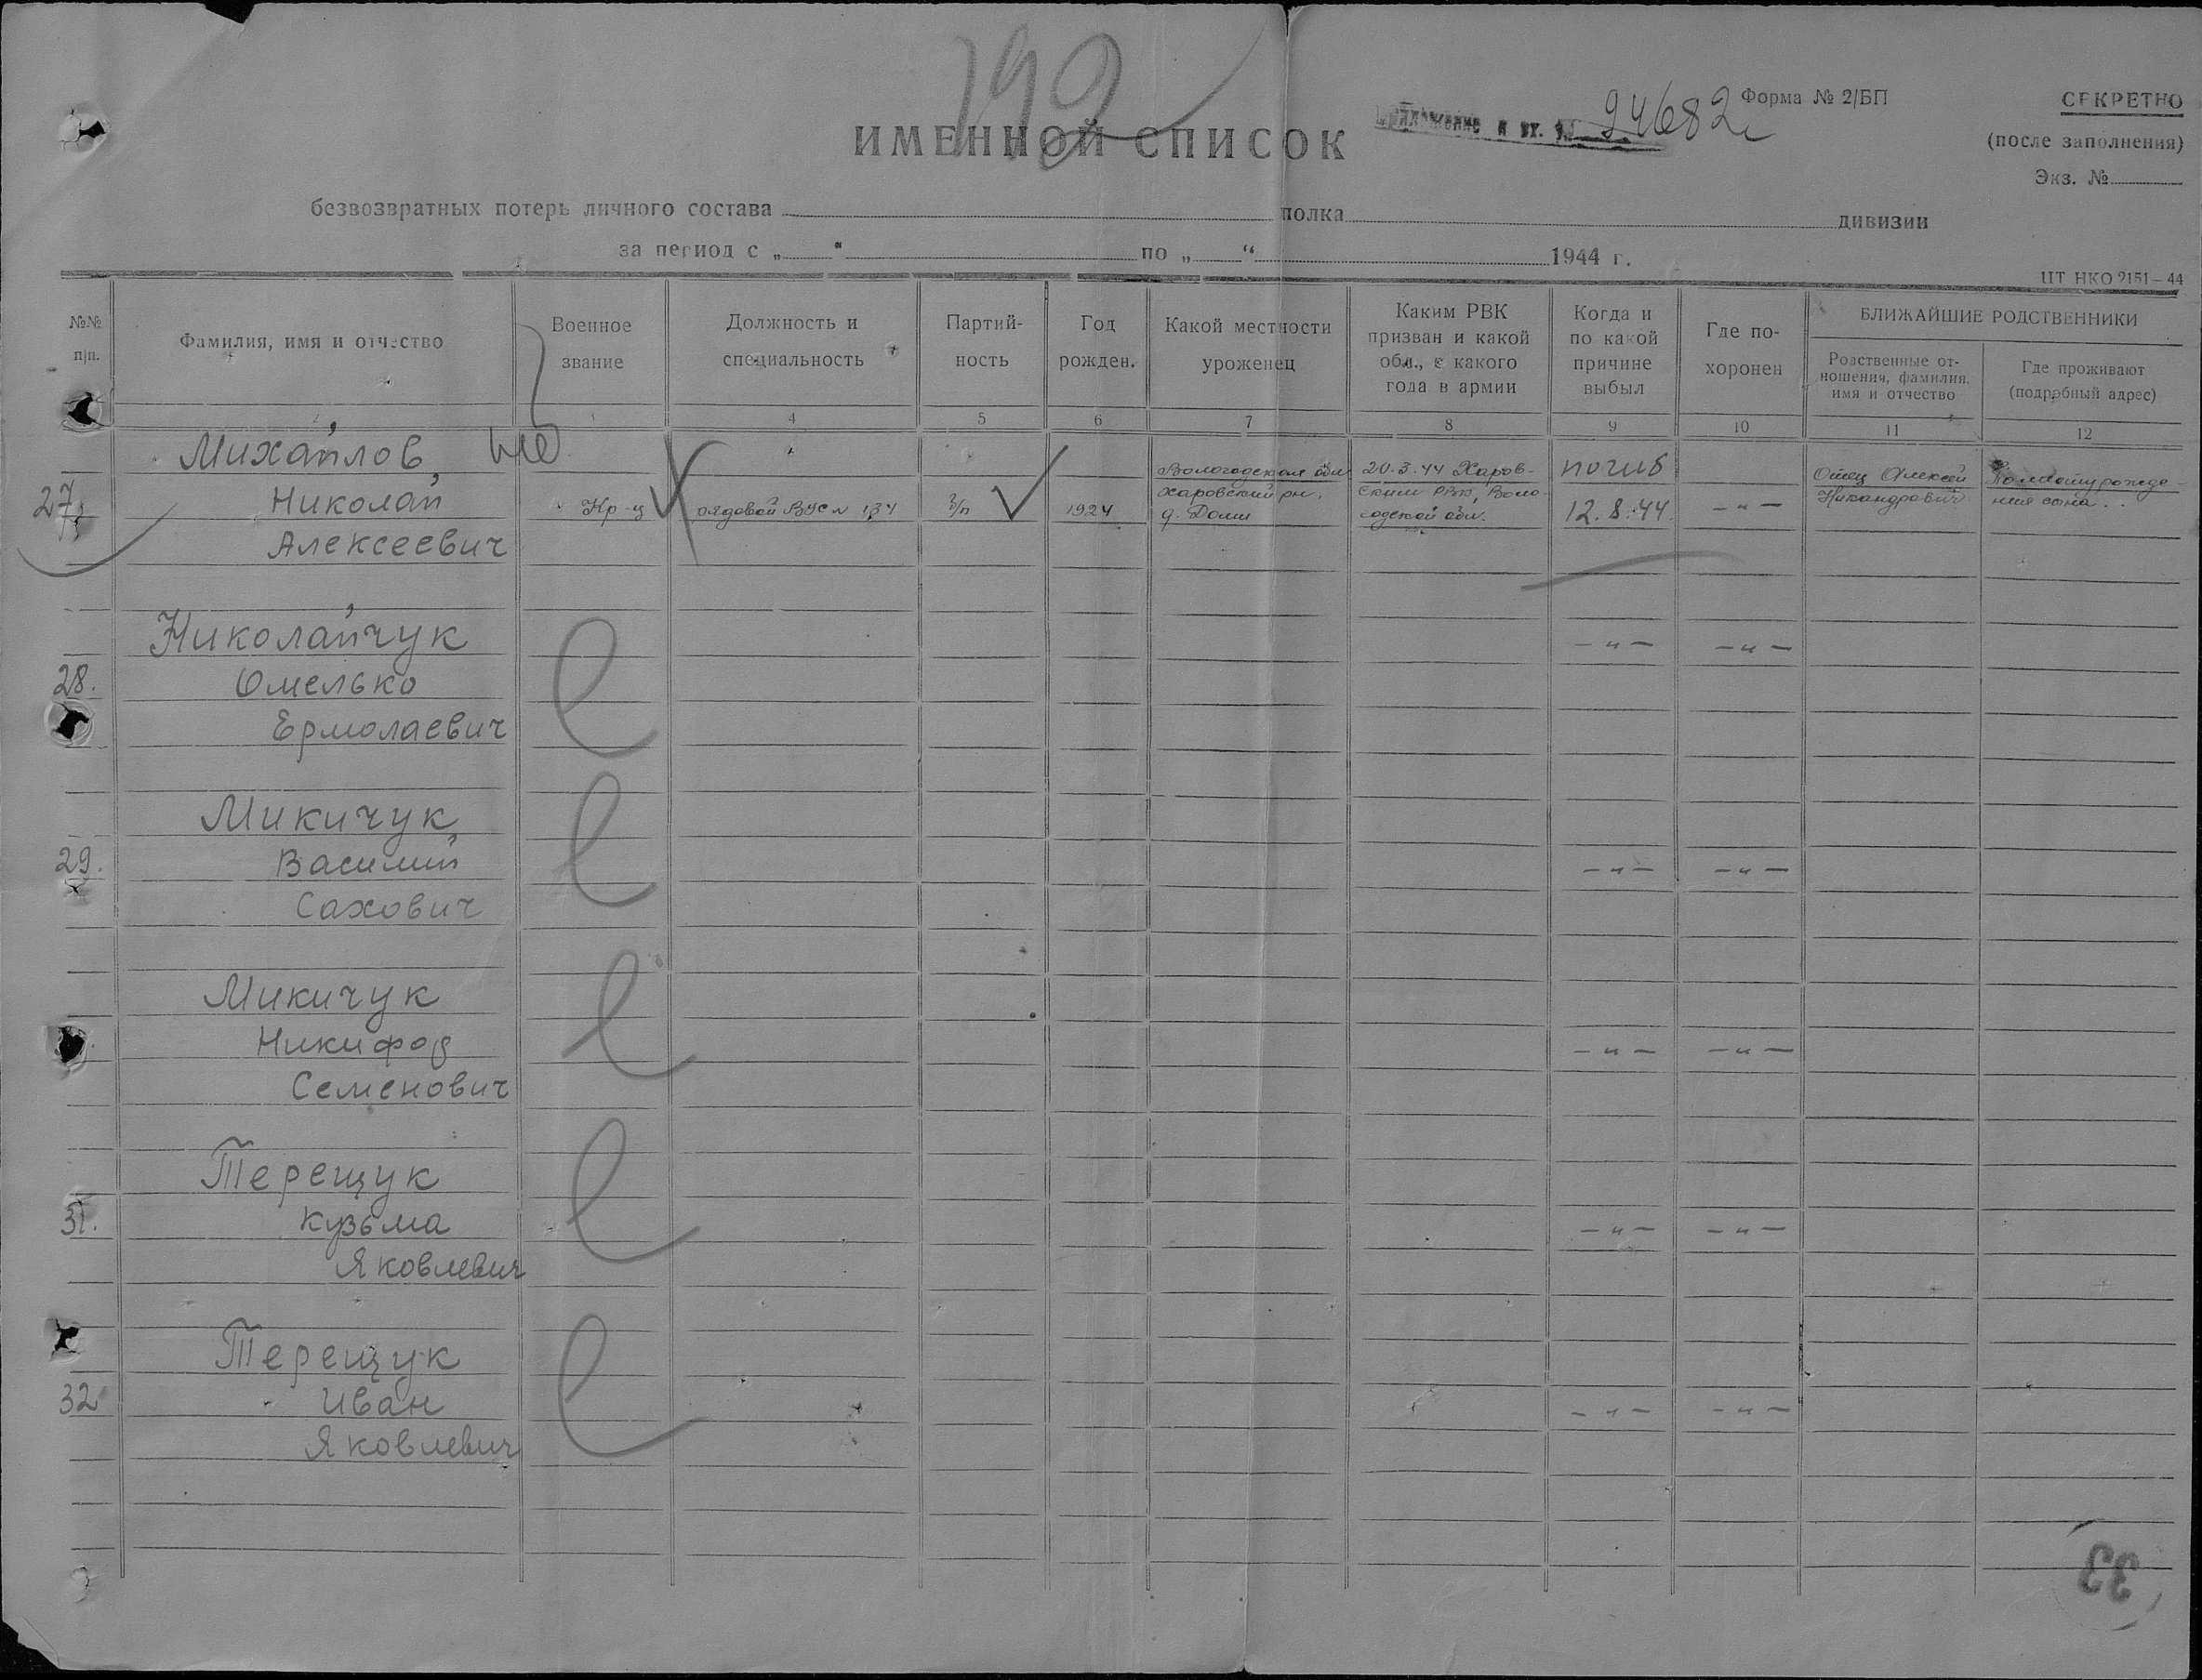 192
Форма № 2/БП
СЕКРЕТНО
Приложение к вх. № 94682с
ИМЕННОЙ СПИСОК
(после заполнения)
Экз. №
безвозвратных потерь личного состава полка дивизии
за период с „ “ по „ “ 1944 г.
ЦТ НКО 2151–44
№№ п/п.
Фамилия, имя и отчество
Военное звание
Должность и специальность
Партий-
ность
Год рожден.
Какой местности уроженец
Каким РВК
призван и какой
обл., с какого
года в армии
Когда и
по какой
причине
выбыл
Где по-
хоронен
БЛИЖАЙШИЕ РОДСТВЕННИКИ
Родственные от-
ношения, фамилия,
имя и отчество
Где проживают
(подробный адрес)
4 5 6 7 8 9 10 11 12
27.
Михайлов
Николай
Алексеевич
Кр-ц
рядовой ВУС № 134
б/п
1924
Вологодская обл
Харовский рн.
д. Доми
20.3.44 Харов-
ским РВК, Воло
годской обл.
погиб
12.8.44
– " –
Отец Алексей
Никандрович
По месту рожде-
ния сына.
28.
Николайчук
Омелько
Ермолаевич
– " – – " –
29.
Микичук
Василий
Сахович
– " – – " –
Микичук
Никифор
Семенович
– " – – " –
31.
Терещук
Кузьма
Яковлевич
– " – – " –
32
Терещук
Иван
Яковлевич
– " – – " –
33